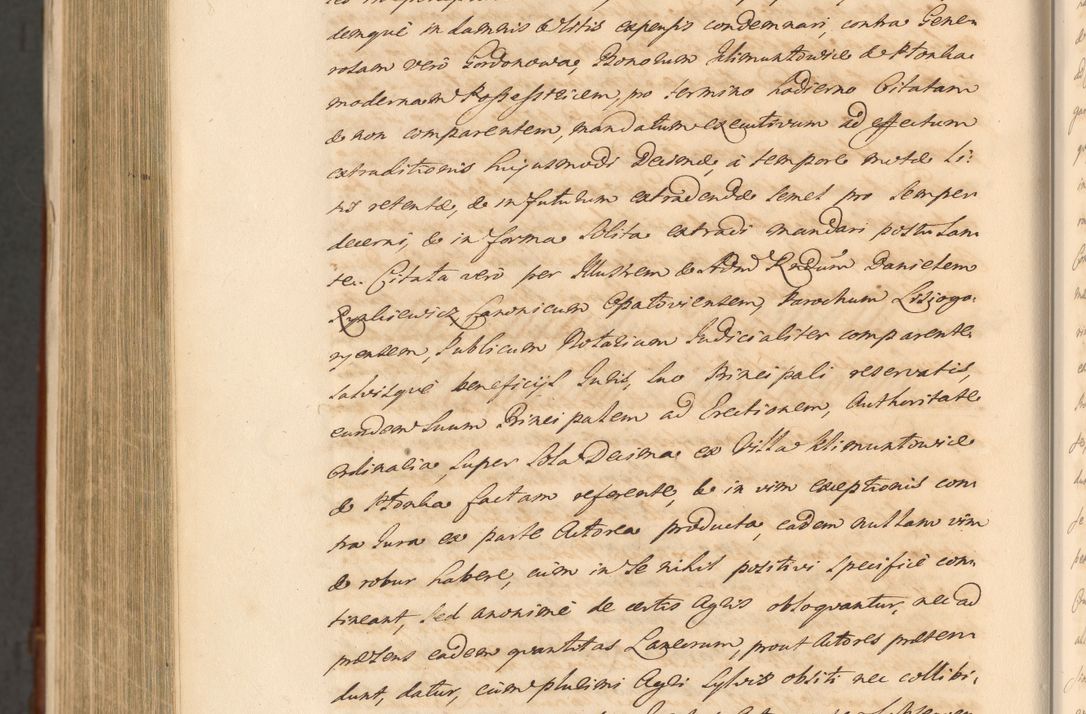 demquè in damnis & litis expensis condemnari, contra Gene-
rosam verò Gordonowa, Bonorum Klimuntowice & Płonka
modernam Possessricem, pro termino hodierno Citatam
& non comparentem, mandatum executivum ad effectum
extraditionis hujusmodi Decimæ, à tempore motæ Li-
tis retentæ, & in futurum extradendæ semel pro semper
decerni, & in forma solita extradi mandari postulan-
te. Citata verò per Illustrem & Admd Rndūm Danielem
Rynkiewicz Canonicum Opatoviensem, Parochum
Publicum Notarium Judicialiter comparente
salvisquè beneficijs Juris, suo Principali reservatis,
eundem suum Principalem ad Erectionem, Authoritate
Ordinaria, super sola Decima ex Villa Klimuntowice
& Płonka factam referente, & in vim exceptionis con-
tra Jura ex parte Actorea producta, eadem nullam vim
& robur habere, cùm in se nihil positivi specificè con-
tineant, sed anonimè de certis Agris obloquantur, nec ad
præsens eadem quantitas Laneorum, prout Actores præten-
dunt, datur, cùm plurimi Agri Sylvis obsiti nec collibi-